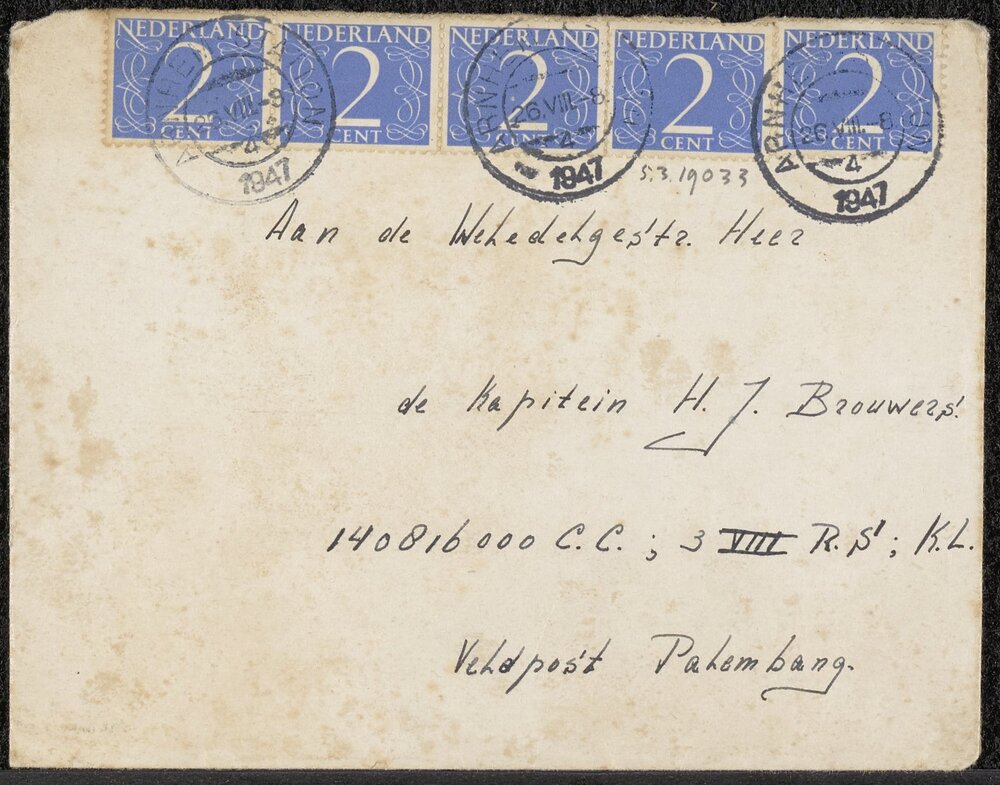 NEDERLAND NEDERLAND NEDERLAND NEDERLAND NEDERLAND
2 2 2 2 2
CENT CENT CENT CENT CENT
ARNHEM STATION
26.VIII.-8
4
1947
ARNHEM
26.VIII.-8
4
1947
ARNHEM
26.VIII.-8
4
1947
5.3.19033
Aan de Weledelgestr. Heer
de Kapitein H. J. Brouwers.
140816000 C.C. ; 3 VIII R.S ; K.L.
Veldpost Palembang.